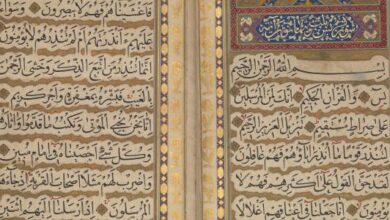 بِسْمِ اللهِ الرَّحْمٰنِ الرَّحِيمِ
وَالْقُرْآنِ الْحَكِيمِ إِنَّكَ لَمِنَ الْمُرْسَلِينَ
عَلَى صِرَاطٍ مُسْتَقِيمٍ تَنْزِيلَ الْعَزِيزِ الرَّحِيمِ
لِتُنْذِرَ قَوْمًا مَا أُنْذِرَ آبَاؤُهُمْ فَهُمْ غَافِلُونَ
لَقَدْ حَقَّ الْقَوْلُ عَلَى أَكْثَرِهِمْ فَهُمْ لَا
إِنَّا جَعَلْنَا فِي أَعْنَاقِهِمْ أَغْلَالًا
فَهُمْ لَا يُبْصِرُونَ
عَلَيْهِمْ أَأَنْذَرْتَهُمْ أَمْ لَمْ تُنْذِرْهُمْ لَا يُؤْمِنُونَ
إِنَّمَا تُنْذِرُ مَنِ اتَّبَعَ الذِّكْرَ وَخَشِيَ الرَّحْمٰنَ
بِالْغَيْبِ فَبَشِّرْهُ بِمَغْفِرَةٍ وَأَجْرٍ كَرِيمٍ
نَحْنُ نُحْيِي الْمَوْتَى وَنَكْتُبُ مَا قَدَّمُوا وَآثَارَهُمْ
وَكُلَّ شَيْءٍ أَحْصَيْنَاهُ فِي إِمَامٍ مُبِينٍ
وَاضْرِبْ لَهُمْ مَثَلًا أَصْحَابَ الْقَرْيَةِ إِذْ جَاءَهَا
الْمُرْسَلُونَ إِذْ أَرْسَلْنَا